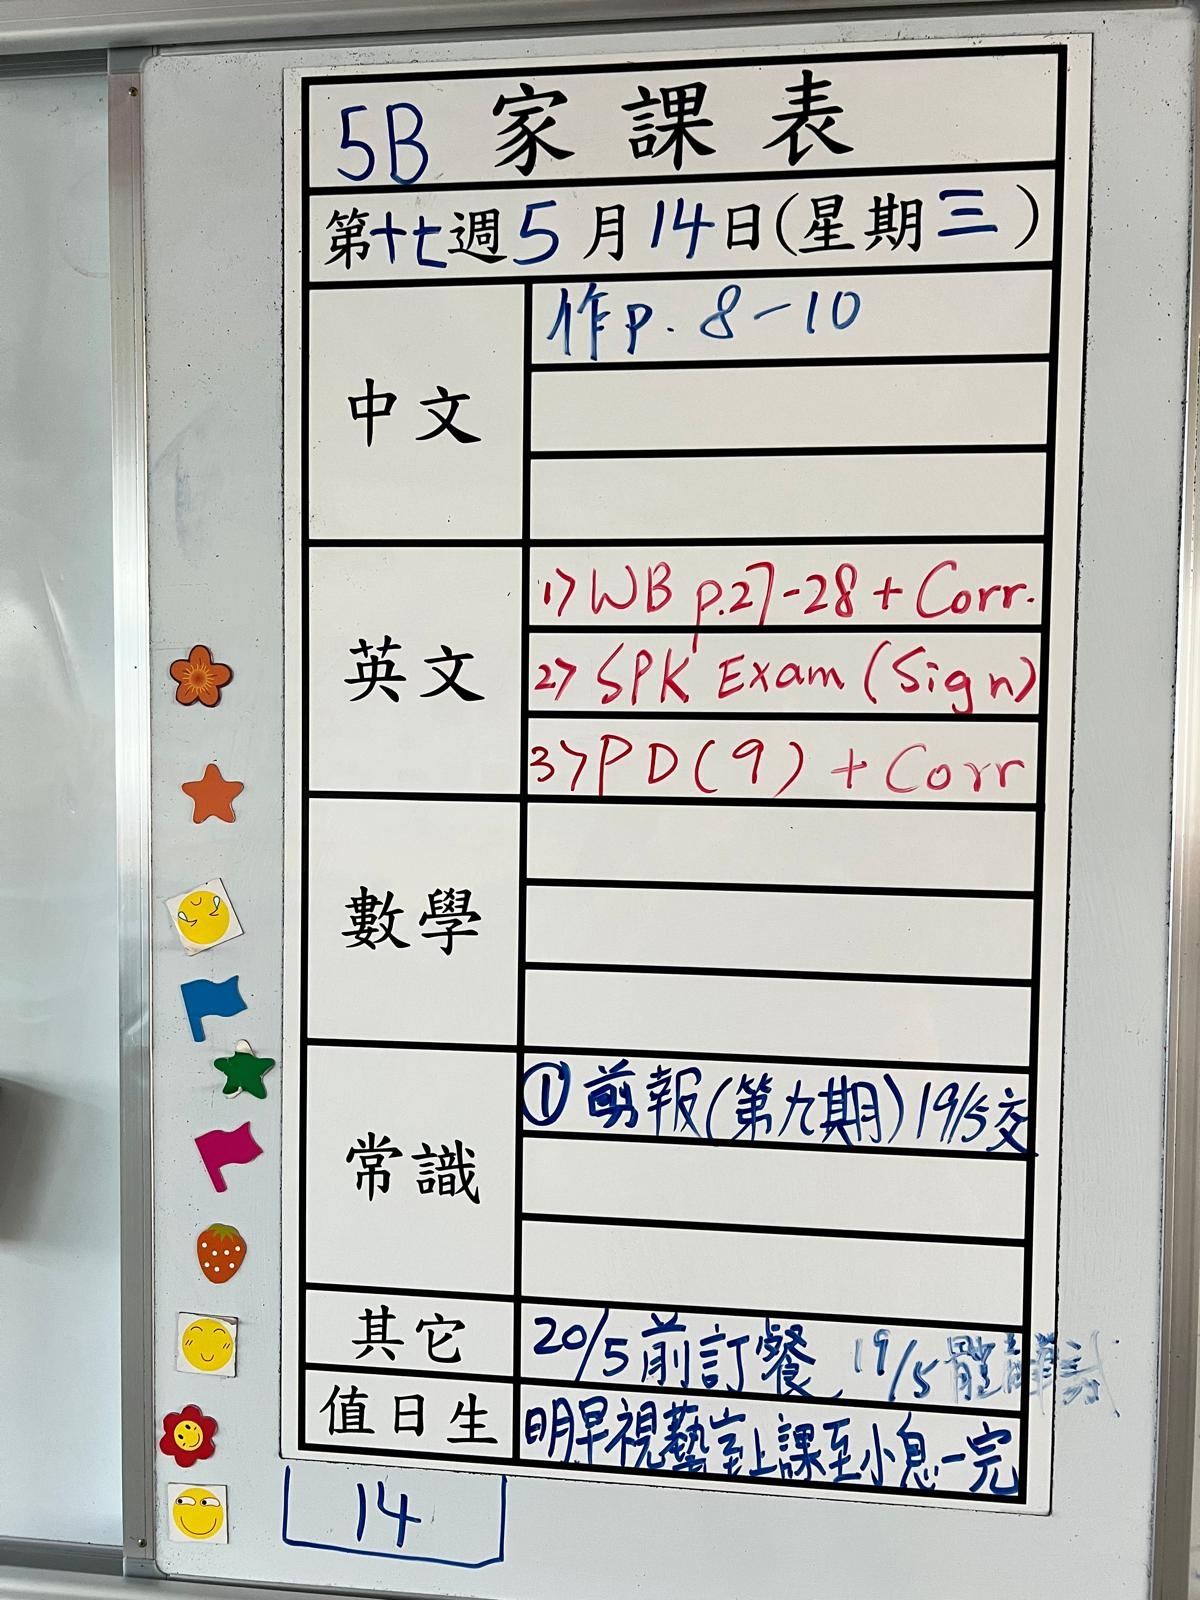 5B 家課表
第十七週5月14日(星期三)
中文
作p. 8-10
英文
1> WB p.27-28 + Corr.
2> SPK Exam (Sign)
3> PD(9) + Corr
數學
常識
① 剪報(第九期) 19/5交
其它
20/5前訂餐 19/5體
值日生
明早視藝室上課至小息一完
14